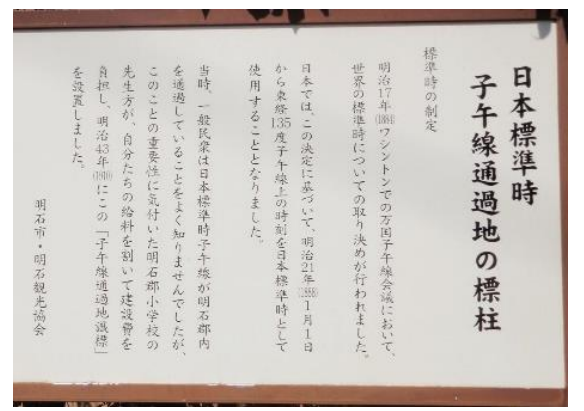 日本標準時
子午線通過地の標柱
標準時の制定
明治17年(1884)ワシントンでの万国子午線会議において、
世界の標準時についての取り決めが行われました。
日本では、この決定に基づいて、明治21年(1888)1月1日
から東経135度子午線上の時刻を日本標準時として
使用することとなりました。
当時、一般民衆は日本標準時子午線が明石郡内
を通過していることをよく知りませんでしたが、
このことの重要性に気付いた明石郡小学校の
先生方が、自分たちの給料を割いて建設費を
負担し、明治43年(1910)にこの「子午線通過地識標」
を設置しました。
明石市・明石観光協会